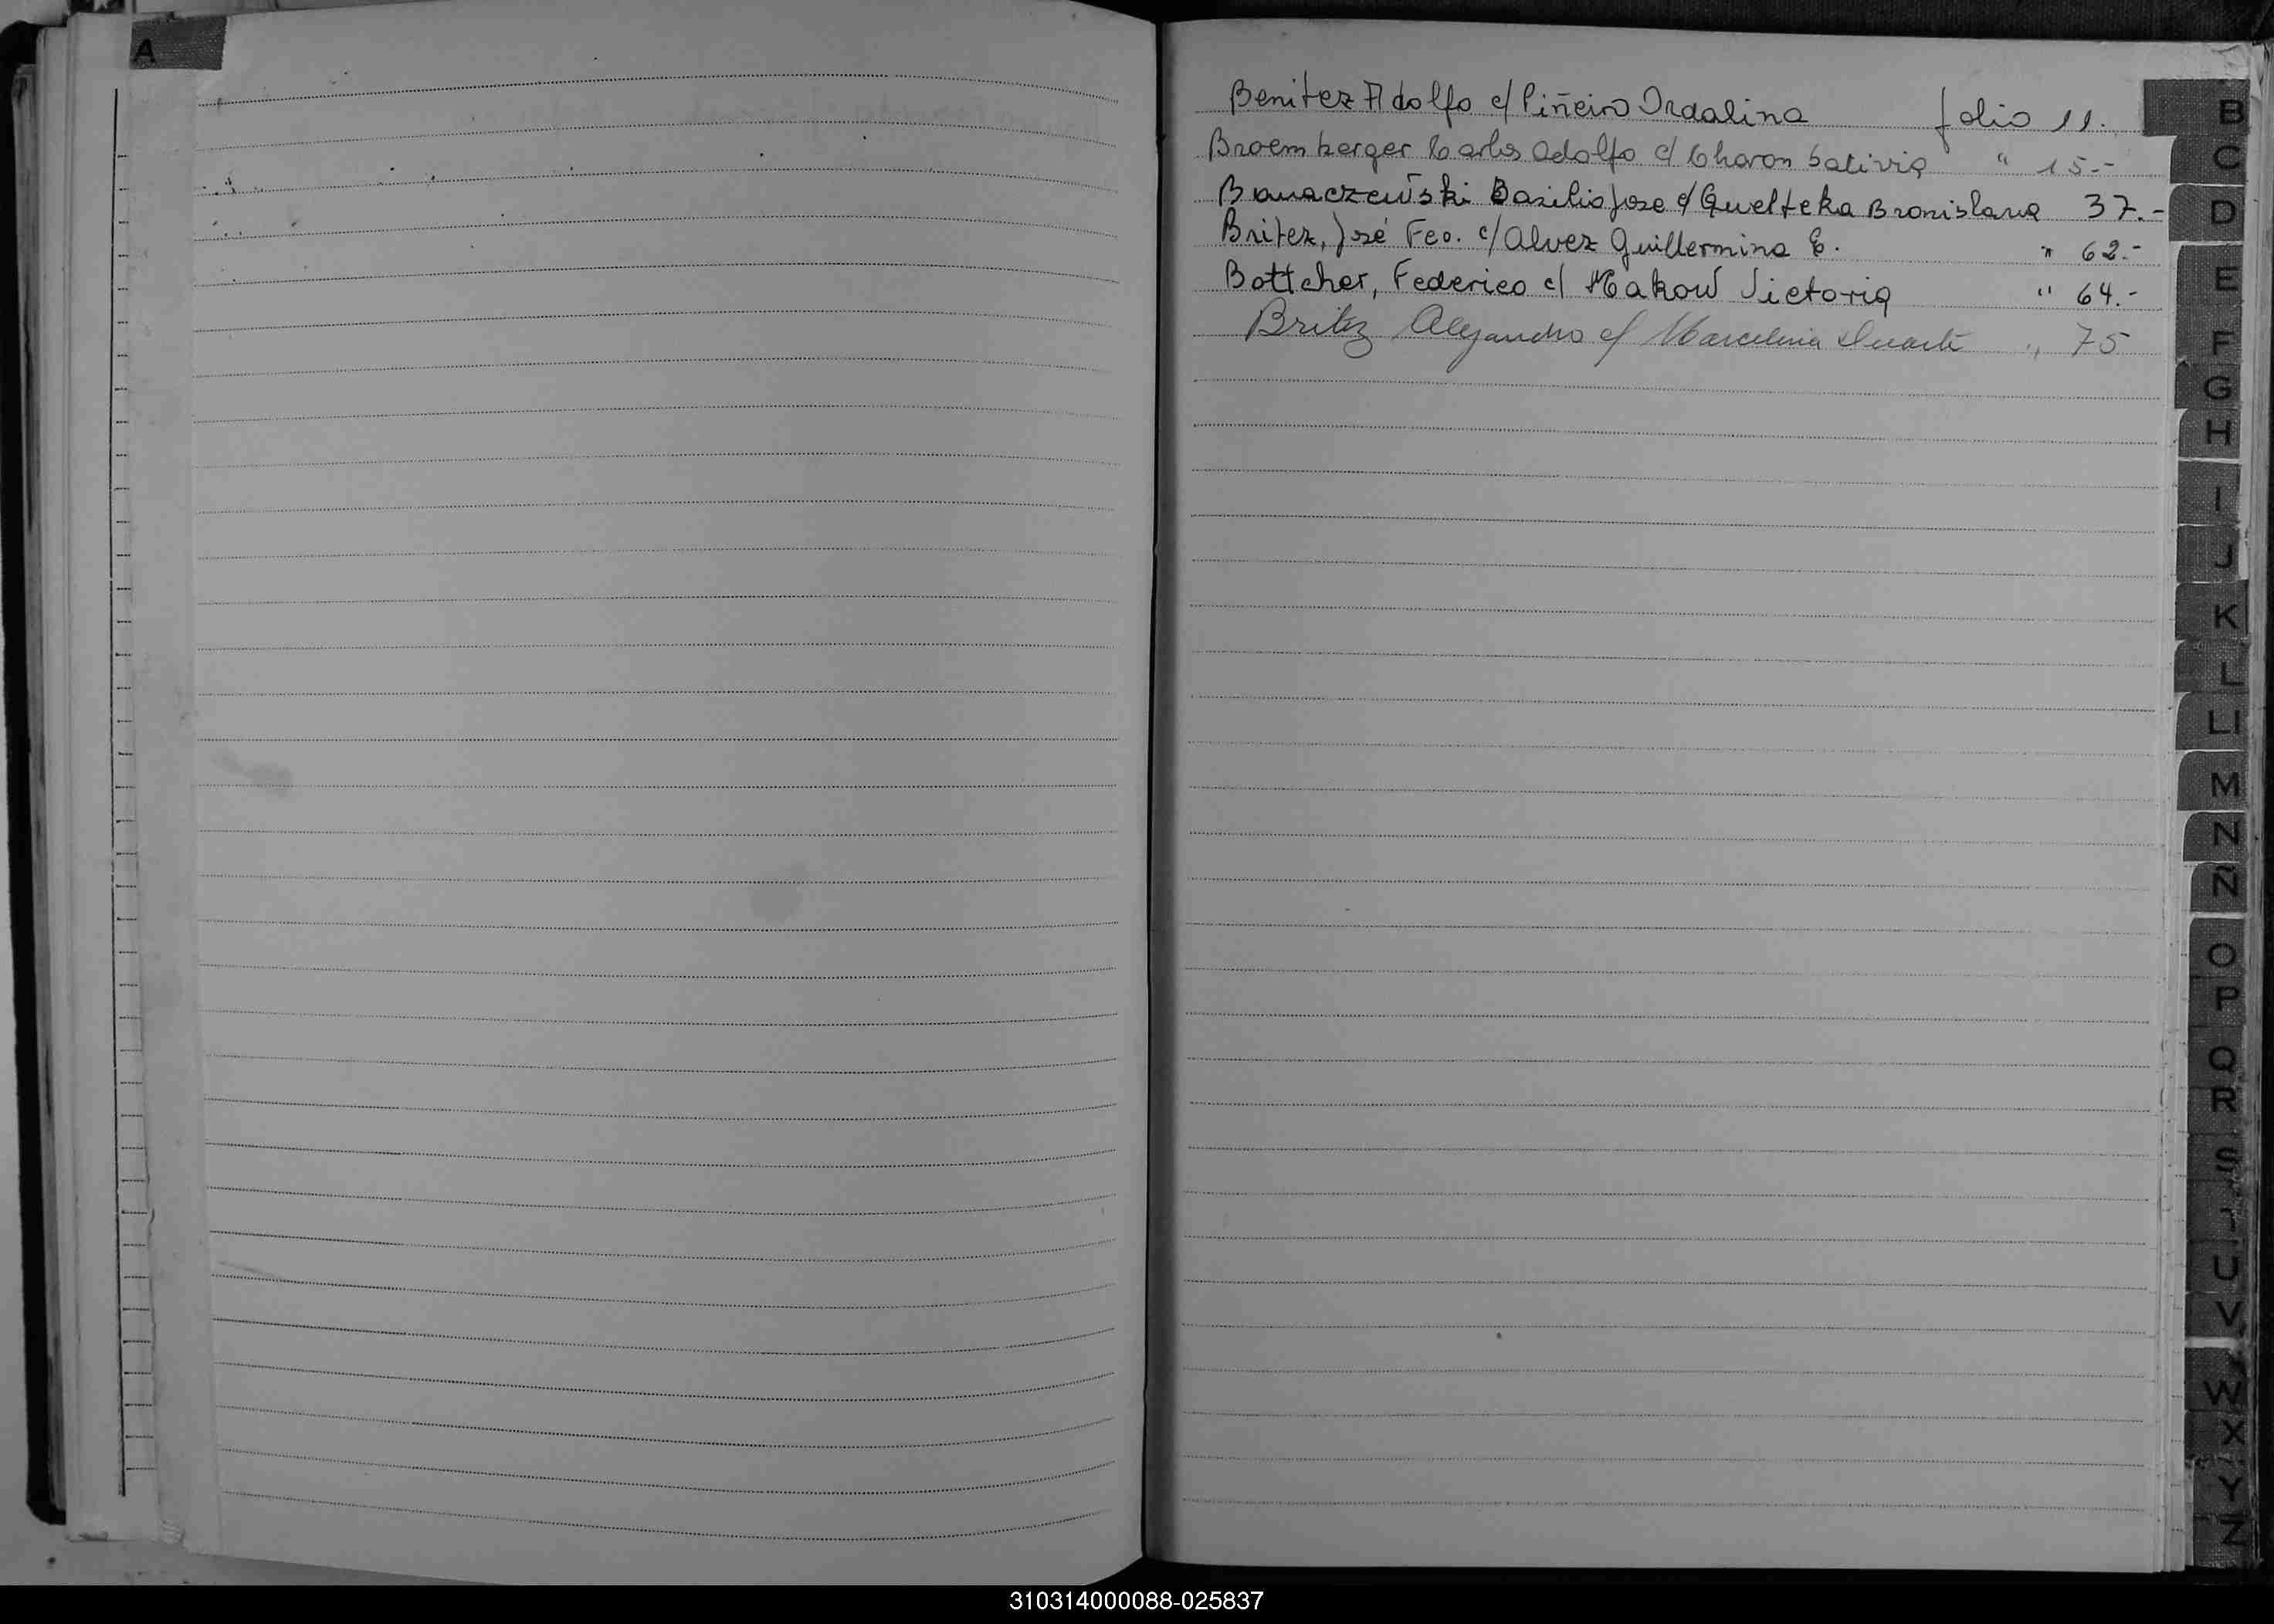 A
Benitez Adolfo c/ Piñeiro Irdalina folio 11.
Broemberger Carlos Adolfo c/ Charon " 15.-
Banaczewski Basilio Jose c/ Bronislava 37.-
Britez, José Fco. c/ Alvez Guillermina E. " 62.-
Bottcher, Federico c/ Makow Victoria " 64.-
Britez Alejandro c/ Marcelina Duarte " 75
B
C
D
E
F
G
H
I
J
K
L
Ll
M
N
Ñ
O
P
Q
R
S
T
U
V
W
X
Y
Z
310314000088-025837